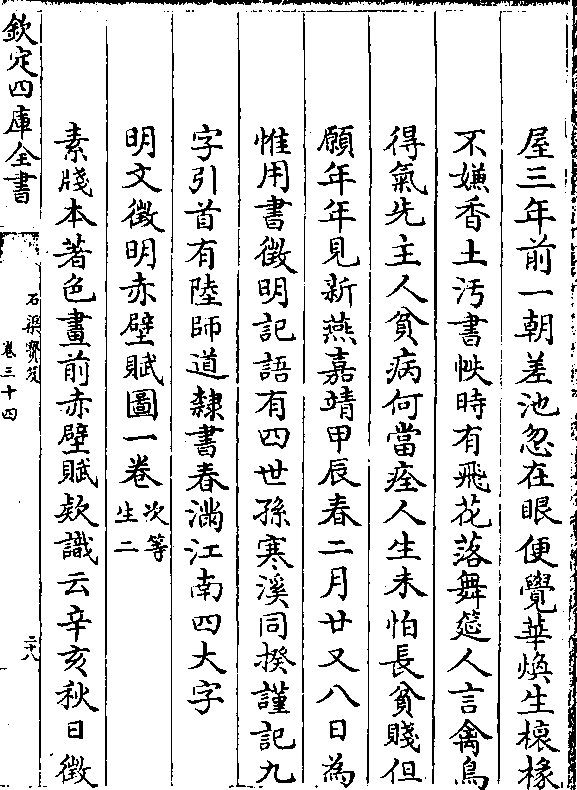 屋三年前一朝差池忽在眼便覺華煥生榱椽
不嫌香土汚書帙時有飛花落舞筵人言禽鳥
得氣先主人貧病何當痊人生未怕長貧賤但
願年年見新燕嘉靖甲辰春二月廿又八日為
惟用書徵明記語有四世孫寒溪同揆謹記九
字引首有陸師道隸書春滿江南四大字
明文徵明赤壁賦圖一卷次等生二
素牋本著色畫前赤壁賦欵識云辛亥秋日徵
欽定四庫全書
石渠寶笈
卷三十四
二十八